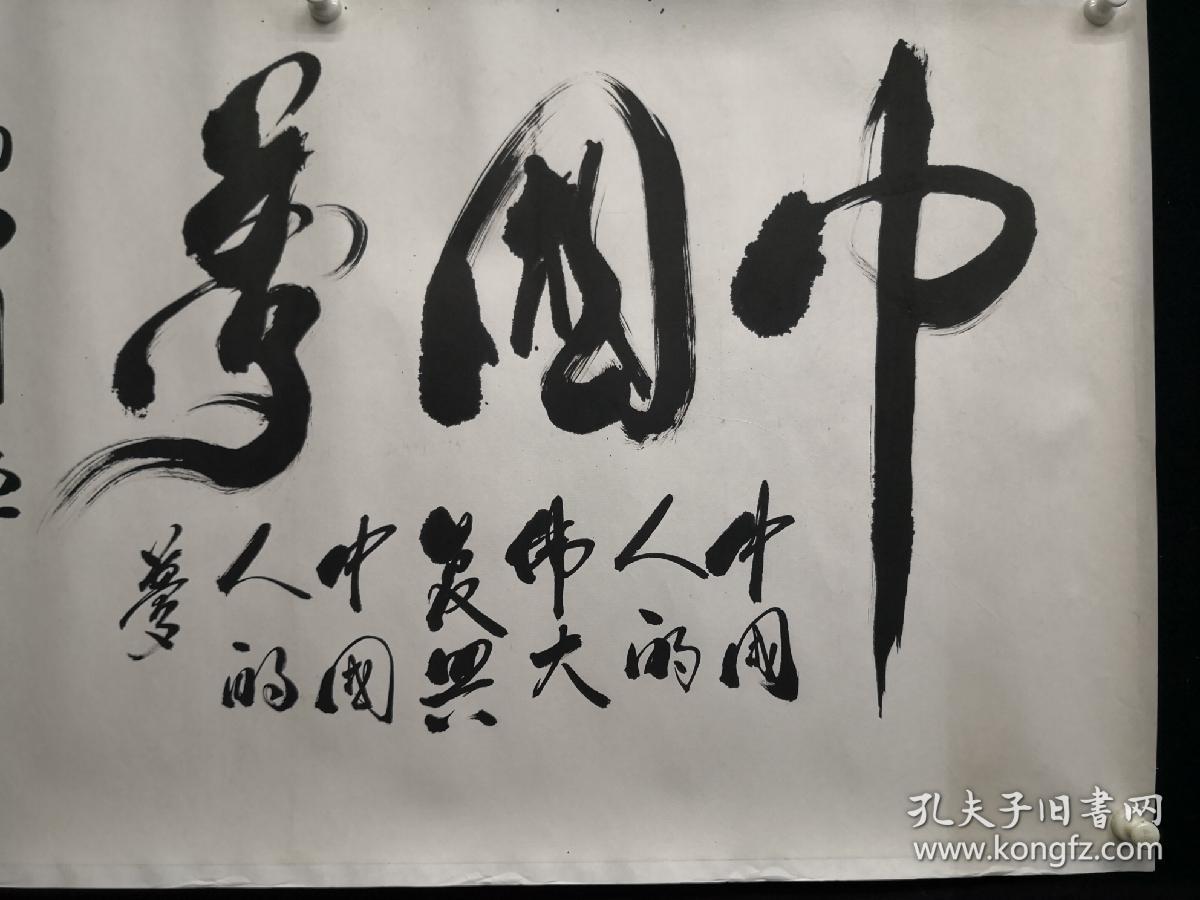 中國夢
中國
人的
偉大
复興
中國
人的
夢
孔夫子旧書网
www.kongfz.com